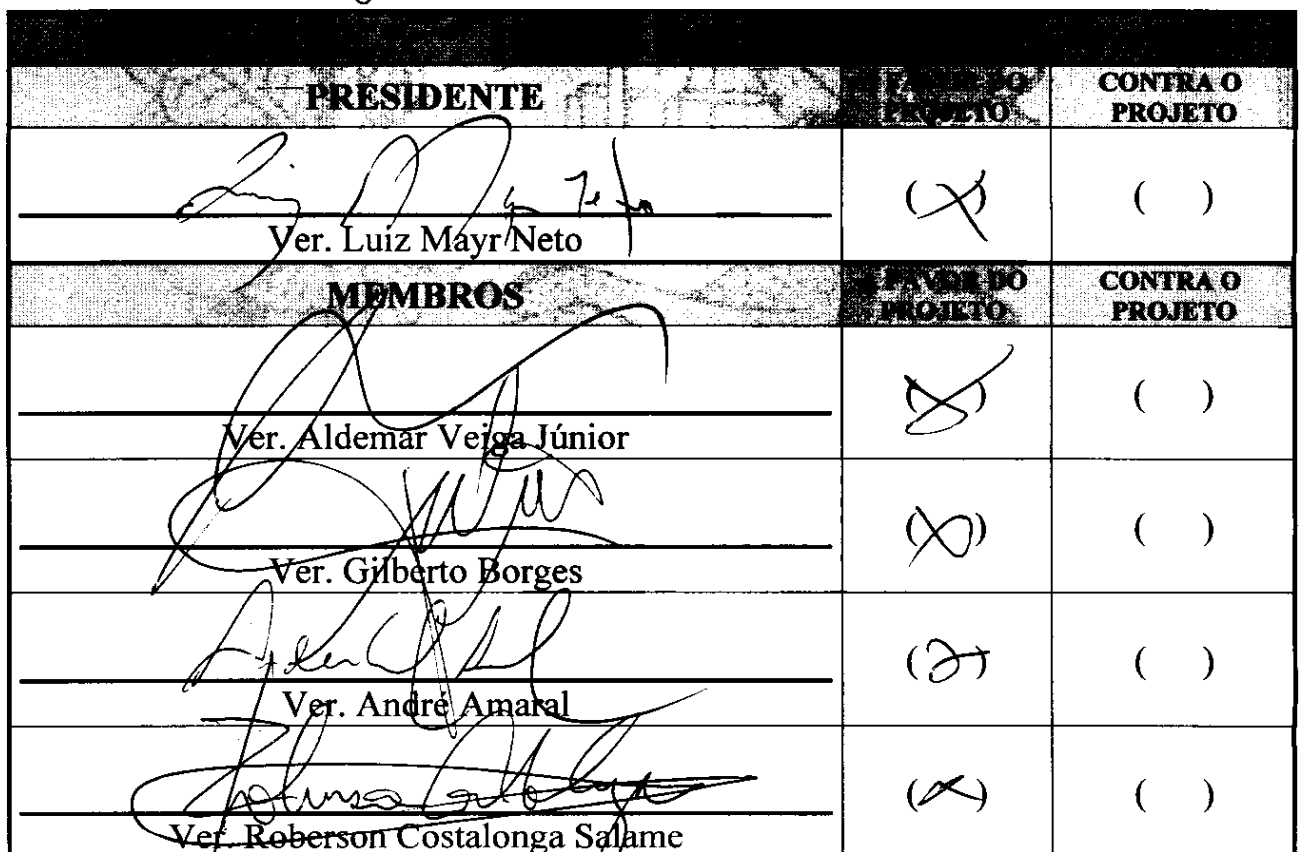 PRESIDENTE
FAVOR DO PROJETO
CONTRA O PROJETO
( X )
( )
Ver. Luiz Mayr Neto
MEMBROS
FAVOR DO PROJETO
CONTRA O PROJETO
( X )
( )
Ver. Aldemar Veiga Júnior
( X )
( )
Ver. Gilberto Borges
( )
Ver. André Amaral
( X )
( )
Ver. Roberson Costalonga Salame